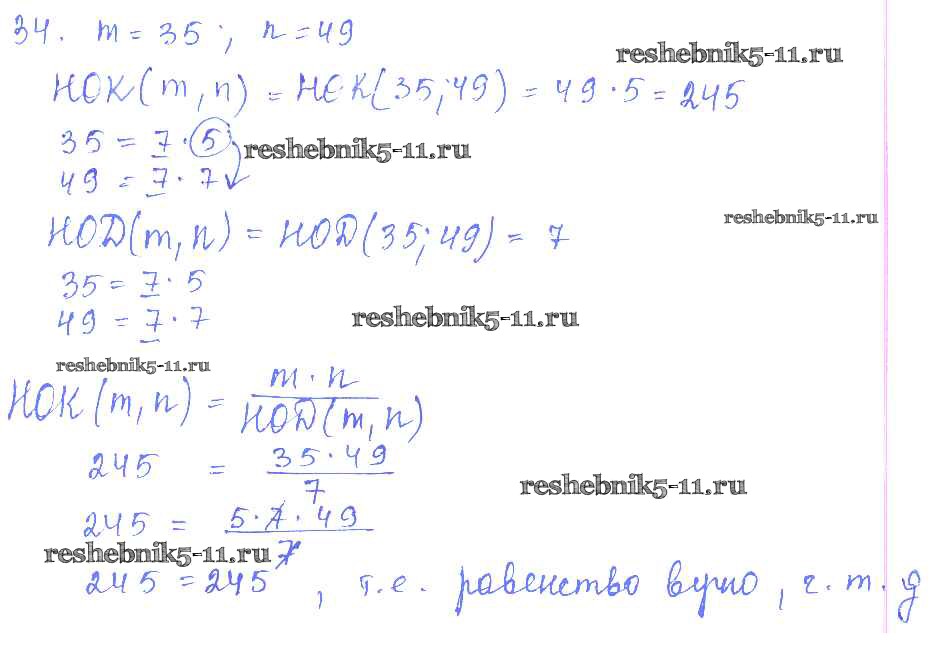 34. m = 35; n = 49
reshebnik5-11.ru
НОК(m, n) = НОК(35; 49) = 49 · 5 = 245
35 = 7 · 5
reshebnik5-11.ru
49 = 7 · 7
reshebnik5-11.ru
НОD(m, n) = НОD(35; 49) = 7
35 = 7 · 5
49 = 7 · 7
reshebnik5-11.ru
reshebnik5-11.ru
НОК(m, n) = m · n / НОD(m, n)
245 = 35 · 49 / 7
reshebnik5-11.ru
245 = 5 · 7 · 49 / 7
reshebnik5-11.ru
245 = 245, т.е. равенство верно, ч.т.д